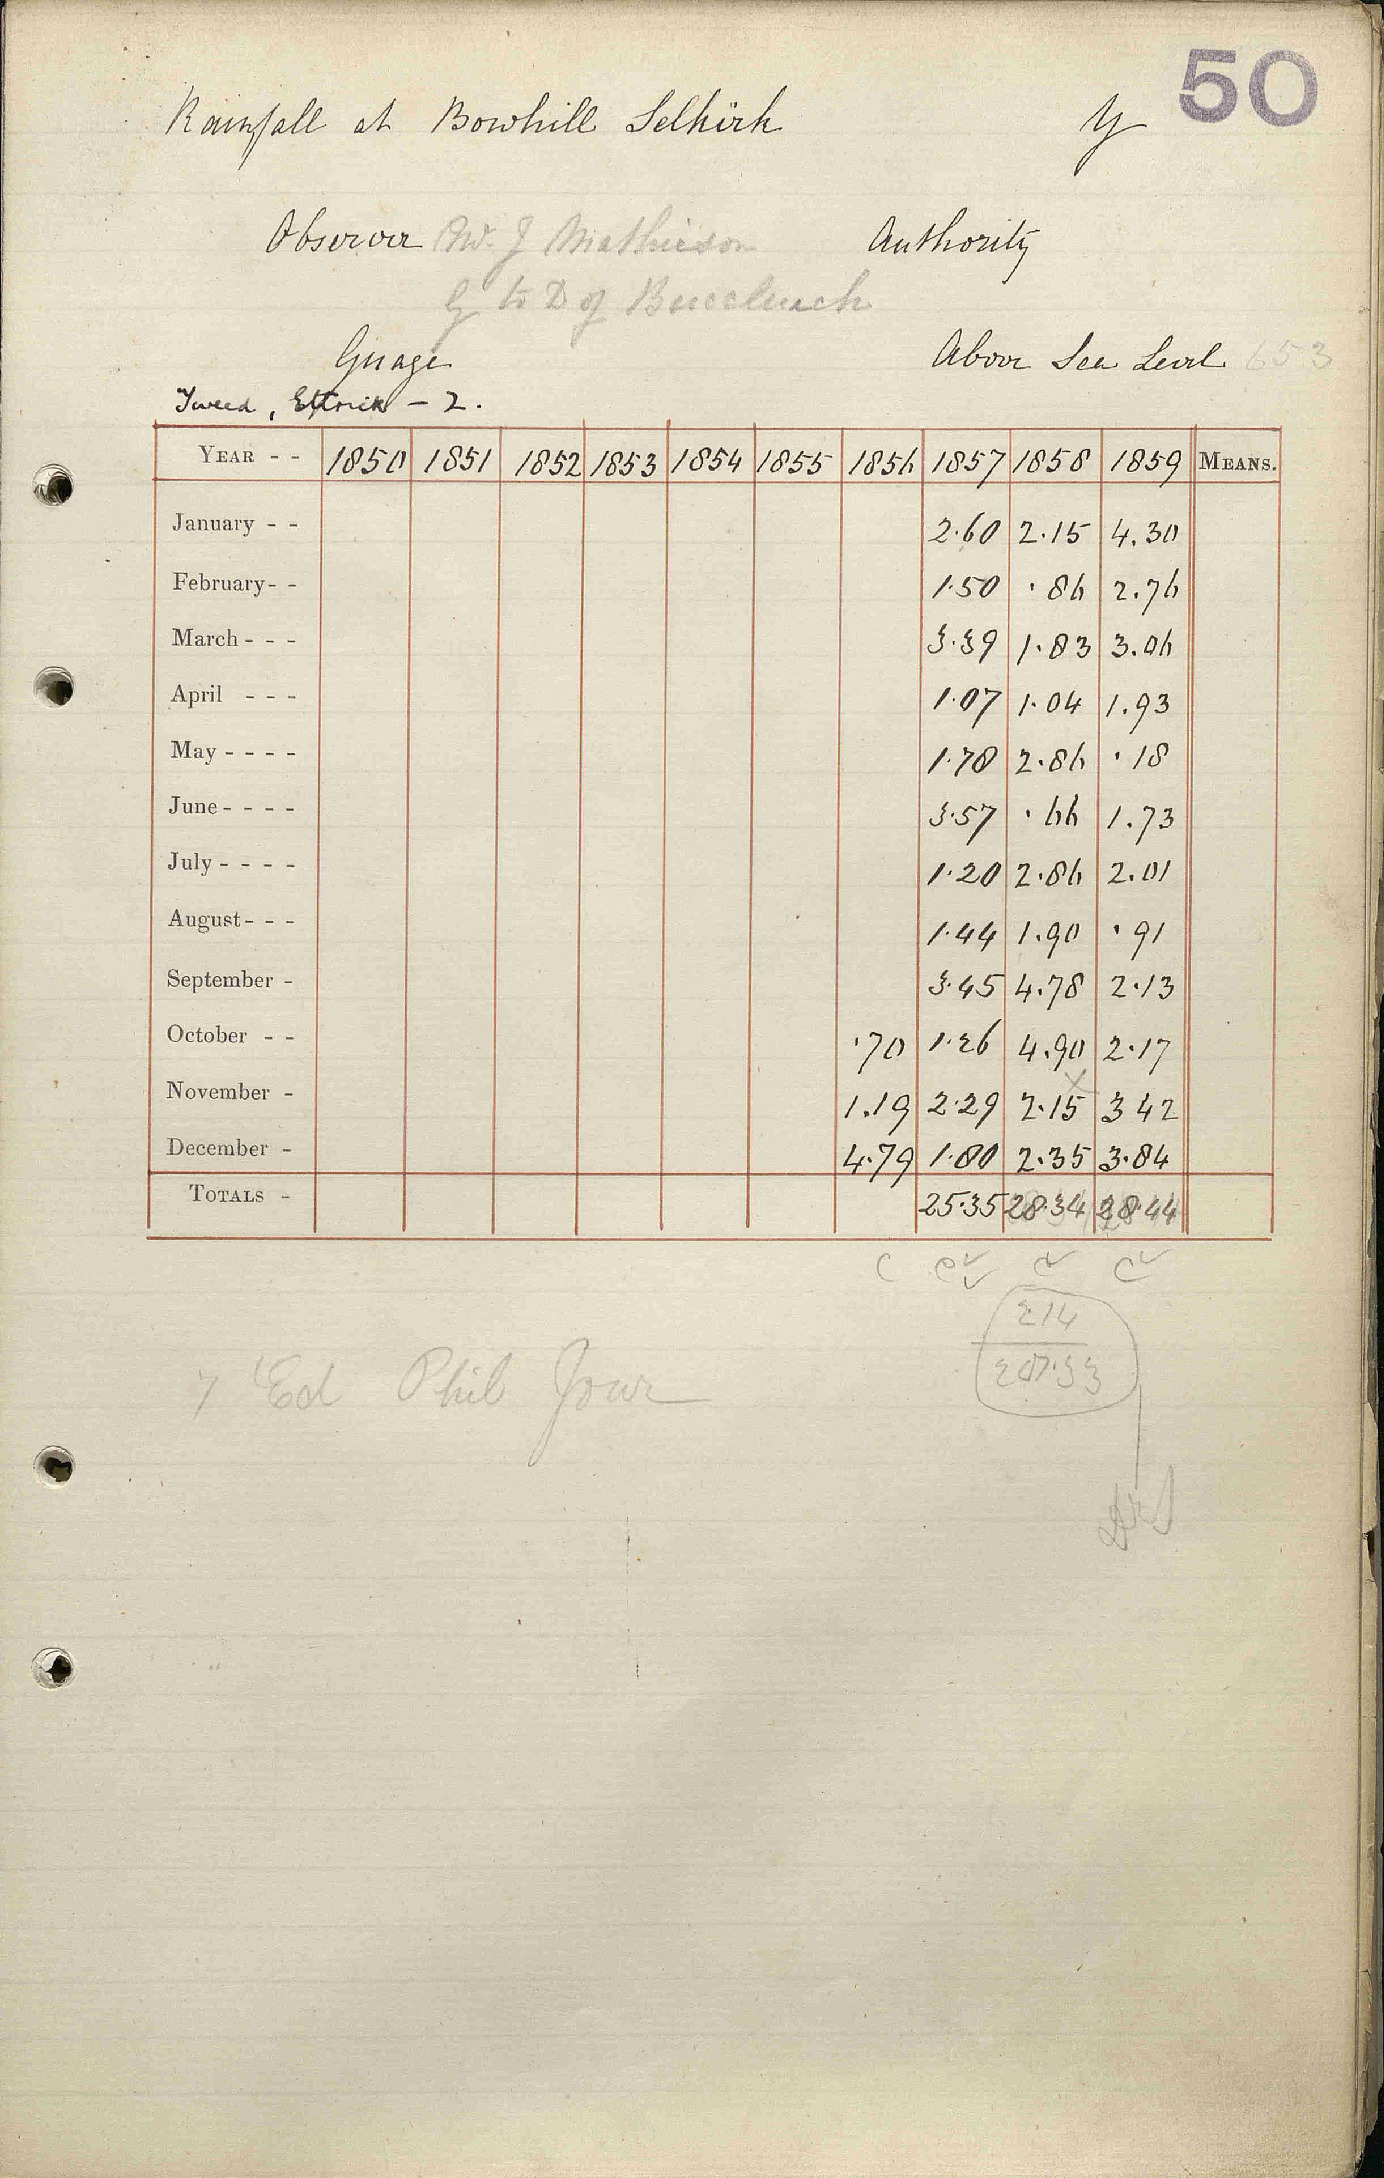 50
Rainfall at Bowhill Selkirk y
Observer Mr. J Mathieson Authority
G to D of Buccleuch
Guage Above Sea Level 653
Tweed, Ettrick - 2.
YEAR - - 1850 1851 1852 1853 1854 1855 1856 1857 1858 1859 MEANS.
January - - 2.60 2.15 4.30
February - - 1.50 .86 2.76
March - - - 3.39 1.83 3.06
April - - - 1.07 1.04 1.93
May - - - - 1.78 2.86 .18
June - - - - 3.57 .66 1.73
July - - - - 1.20 2.86 2.01
August - - - 1.44 1.90 .91
September - 3.45 4.78 2.13
October - - .70 1.26 4.90 2.17
x
November - 1.19 2.29 2.15 3 42
December - 4.79 1.80 2.35 3.84
TOTALS - 25.35 28.34 28.44
214
207.33
Ed Phil Jour